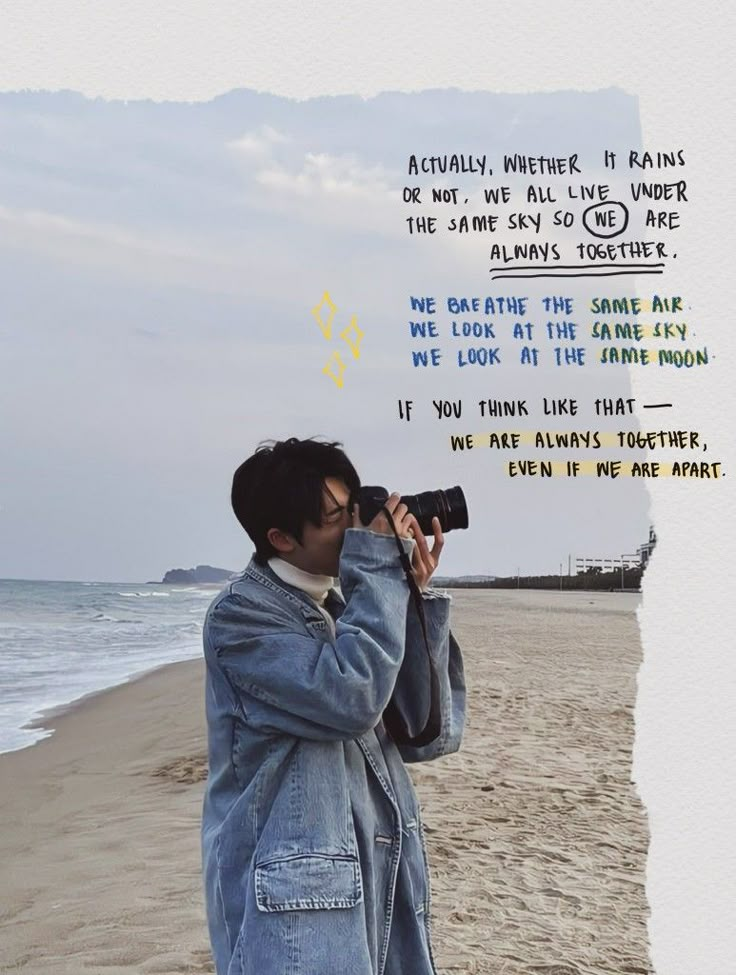 ACTUALLY, WHETHER IT RAINS
OR NOT, WE ALL LIVE UNDER
THE SAME SKY SO WE ARE
ALWAYS TOGETHER.
WE BREATHE THE SAME AIR.
WE LOOK AT THE SAME SKY.
WE LOOK AT THE SAME MOON.
IF YOU THINK LIKE THAT —
WE ARE ALWAYS TOGETHER,
EVEN IF WE ARE APART.